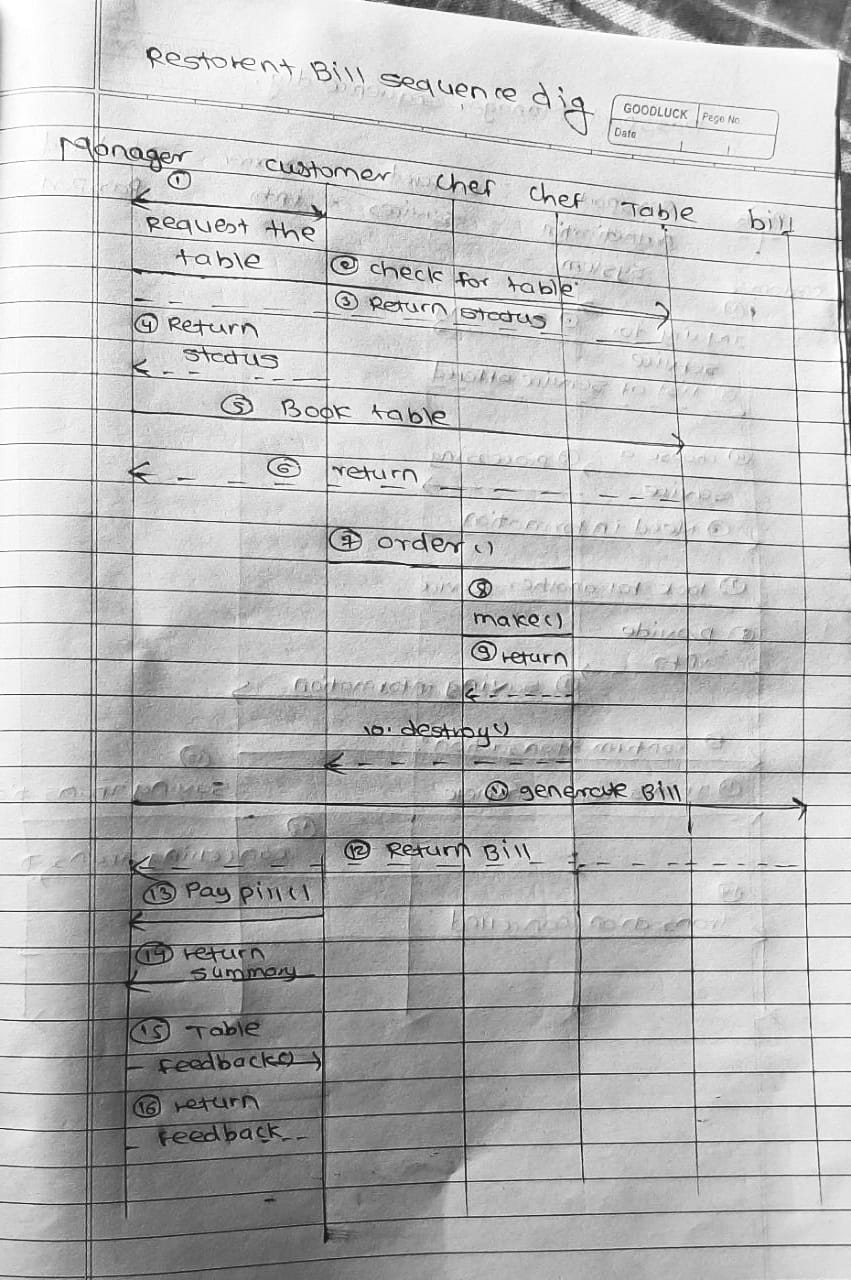 Restorent Bill sequence dig
GOODLUCK Page No
Date
Manager customer chef chef Table bill
①
Request the
table
② check for table
③ Return status
④ Return
status
⑤ Book table
⑥ return
⑦ order()
⑧
make()
⑨ return
10. destroy()
⑪ generate Bill
⑫ Return Bill
⑬ Pay pill()
⑭ return
summary
⑮ Table
feedback()
⑯ return
feedback